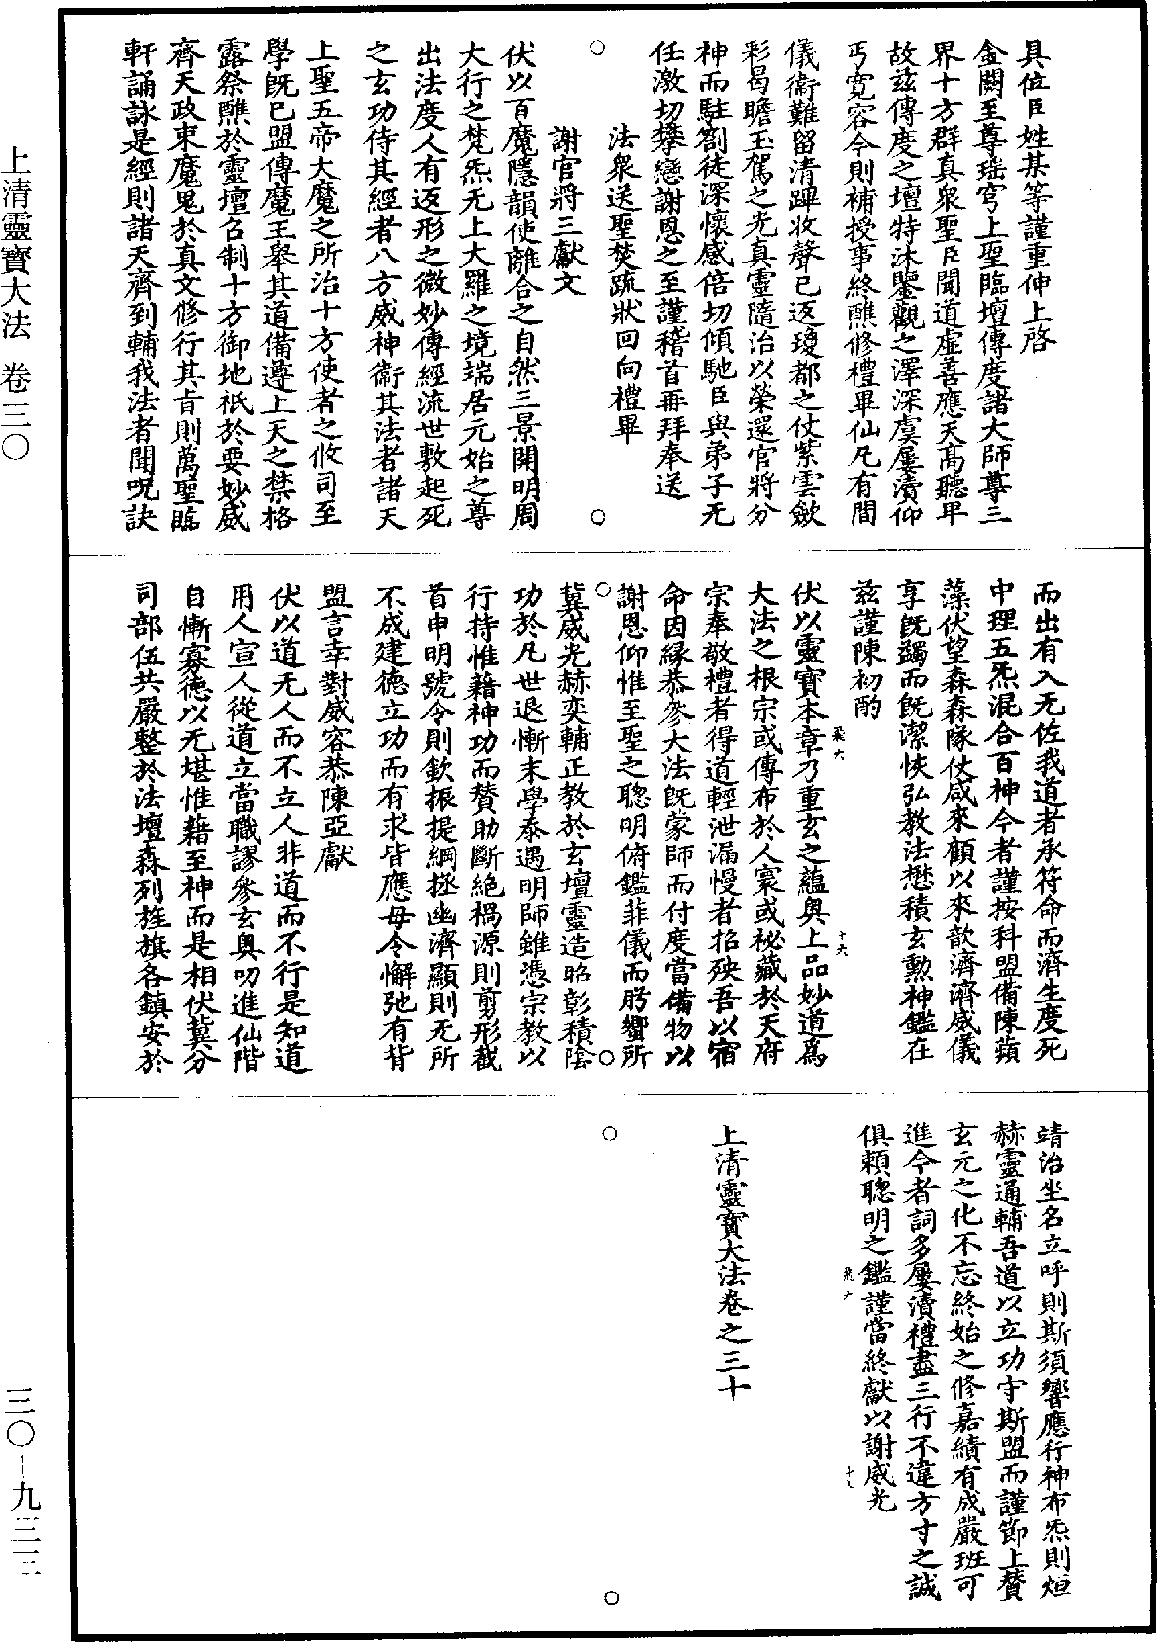 具位臣姓某等謹重伸上啓
金闕至尊瑶穹上聖臨壇傳度諸大師尊三
界十方群真衆聖臣聞道虛善應天高聽卑
故兹傳度之壇特沐鑒觀之澤深虞屢瀆仰
丐寬容今則補授事終醮修禮畢仙凡有間
儀衛難留清蹕收聲已返瓊都之仗紫雲歛
彩曷瞻玉駕之光真靈隨治以榮還官將分
神而駐劄徒深懷感倍切傾馳臣與弟子无
任激切攀戀謝恩之至謹稽首再拜奉送
法衆送聖焚疏狀回向禮畢
謝官將三獻文
伏以百魔隱韻使離合之自然三景開明周
大行之梵炁无上大羅之境端居元始之尊
出法度人有返形之微妙傳經流世敷起死
之玄功侍其經者八方威神衛其法者諸天
上聖五帝大魔之所治十方使者之攸司至
學既已盟傳魔王舉其道備遵上天之禁格
露祭醮於靈壇召制十方御地祇於要妙威
齊天政束魔鬼於真文修行其旨則萬聖臨
軒誦詠是經則諸天齊到輔我法者聞呪訣
而出有入无佐我道者承符命而濟生度死
中理五炁混合百神今者謹按科盟備陳蘋
藻伏望森森隊仗咸來顧以來歆濟濟威儀
享既蠲而既潔恢弘教法懋積玄勳神鑑在
兹謹陳初酌
伏以靈寶本章乃重玄之藴奥上品妙道爲
大法之根宗或傳布於人寰或祕藏於天府
宗奉敬禮者得道輕泄漏慢者招殃吾以宿
命因緣恭參大法既蒙師而付度當備物以
謝恩仰惟至聖之聰明俯鑑菲儀而肹蠁所
冀威光赫奕輔正教於玄壇靈造昭彰積陰
功於凡世退慚末學泰遇明師雖憑宗教以
行持惟藉神功而賛助斷絶禍源則剪形截
首申明號令則欽振提綱拯幽濟顯則无所
不成建德立功而有求皆應毋令懈弛有背
盟言幸對威容恭陳亞獻
伏以道无人而不立人非道而不行是知道
用人宣人從道立當職謬參玄奥叨進仙階
自慚寡德以无堪惟藉至神而是相伏冀分
司部伍共嚴整於法壇森列旌旗各鎮安於
靖治坐名立呼則斯須響應行神布炁則烜
赫靈通輔吾道以立功守斯盟而謹節上賛
玄元之化不忘終始之修嘉績有成嚴班可
進今者詞多屢瀆禮盡三行不違方寸之誠
俱賴聰明之鑑謹當終獻以謝威光
上清靈寶大法卷之三十
上清靈寶大法 卷三〇
三〇–九三三